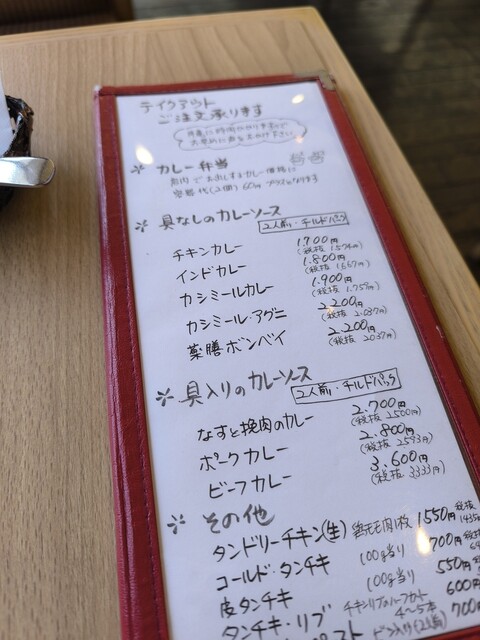 テイクアウト
ご注文承ります
カレー弁当
店内でお出しするカレー価格に
容器代(2個)60円プラスになります
具なしのカレーソース 2人前・チルドパック
チキンカレー 1.700円
(税抜 1.574円)
インドカレー 1.800円
(税抜 1.667円)
カシミールカレー 1.900円
(税抜 1.759円)
カシミール・アグニ 2.200円
(税抜 2.037円)
薬膳ボンベイ 2.200円
(税抜 2037円)
具入りのカレーソース 2人前・チルドパック
なすと挽肉のカレー 2.700円
(税抜 2500円)
ポークカレー 2.800円
(税抜 2593円)
ビーフカレー 3.600円
(税抜 3333円)
その他
タンドリーチキン(生) 鶏モモ肉1枚 1550円 税抜 1435
コールド・タンチキ 100g当り 700円 税抜
皮タンチキ 100g当り 550円
タンチキ・リブ チキンリブのハーフカット 4〜5本 600円
700